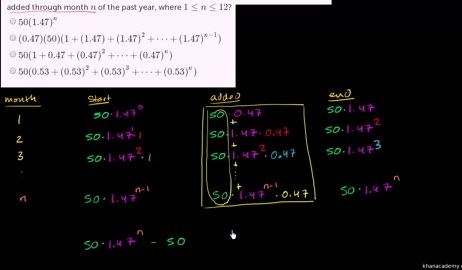 added through month n of the past year, where 1 ≤ n ≤ 12?
50(1.47)^n
(0.47)(50)(1 + (1.47) + (1.47)^2 + ··· + (1.47)^{n−1})
50(1 + 0.47 + (0.47)^2 + ··· + (0.47)^n)
50(0.53 + (0.53)^2 + (0.53)^3 + ··· + (0.53)^n)
month start added end
1 50·1.47^0 50·0.47 50·1.47
+
2 50·1.47^1·1 50·1.47·0.47 50·1.47^2
+
3 50·1.47^2·1 50·1.47^2·0.47 50·1.47^3
+
⋮
+
n 50·1.47^{n-1} 50·1.47^{n-1}·0.47 50·1.47^n
50·1.47^n - 50
khanacademy.o